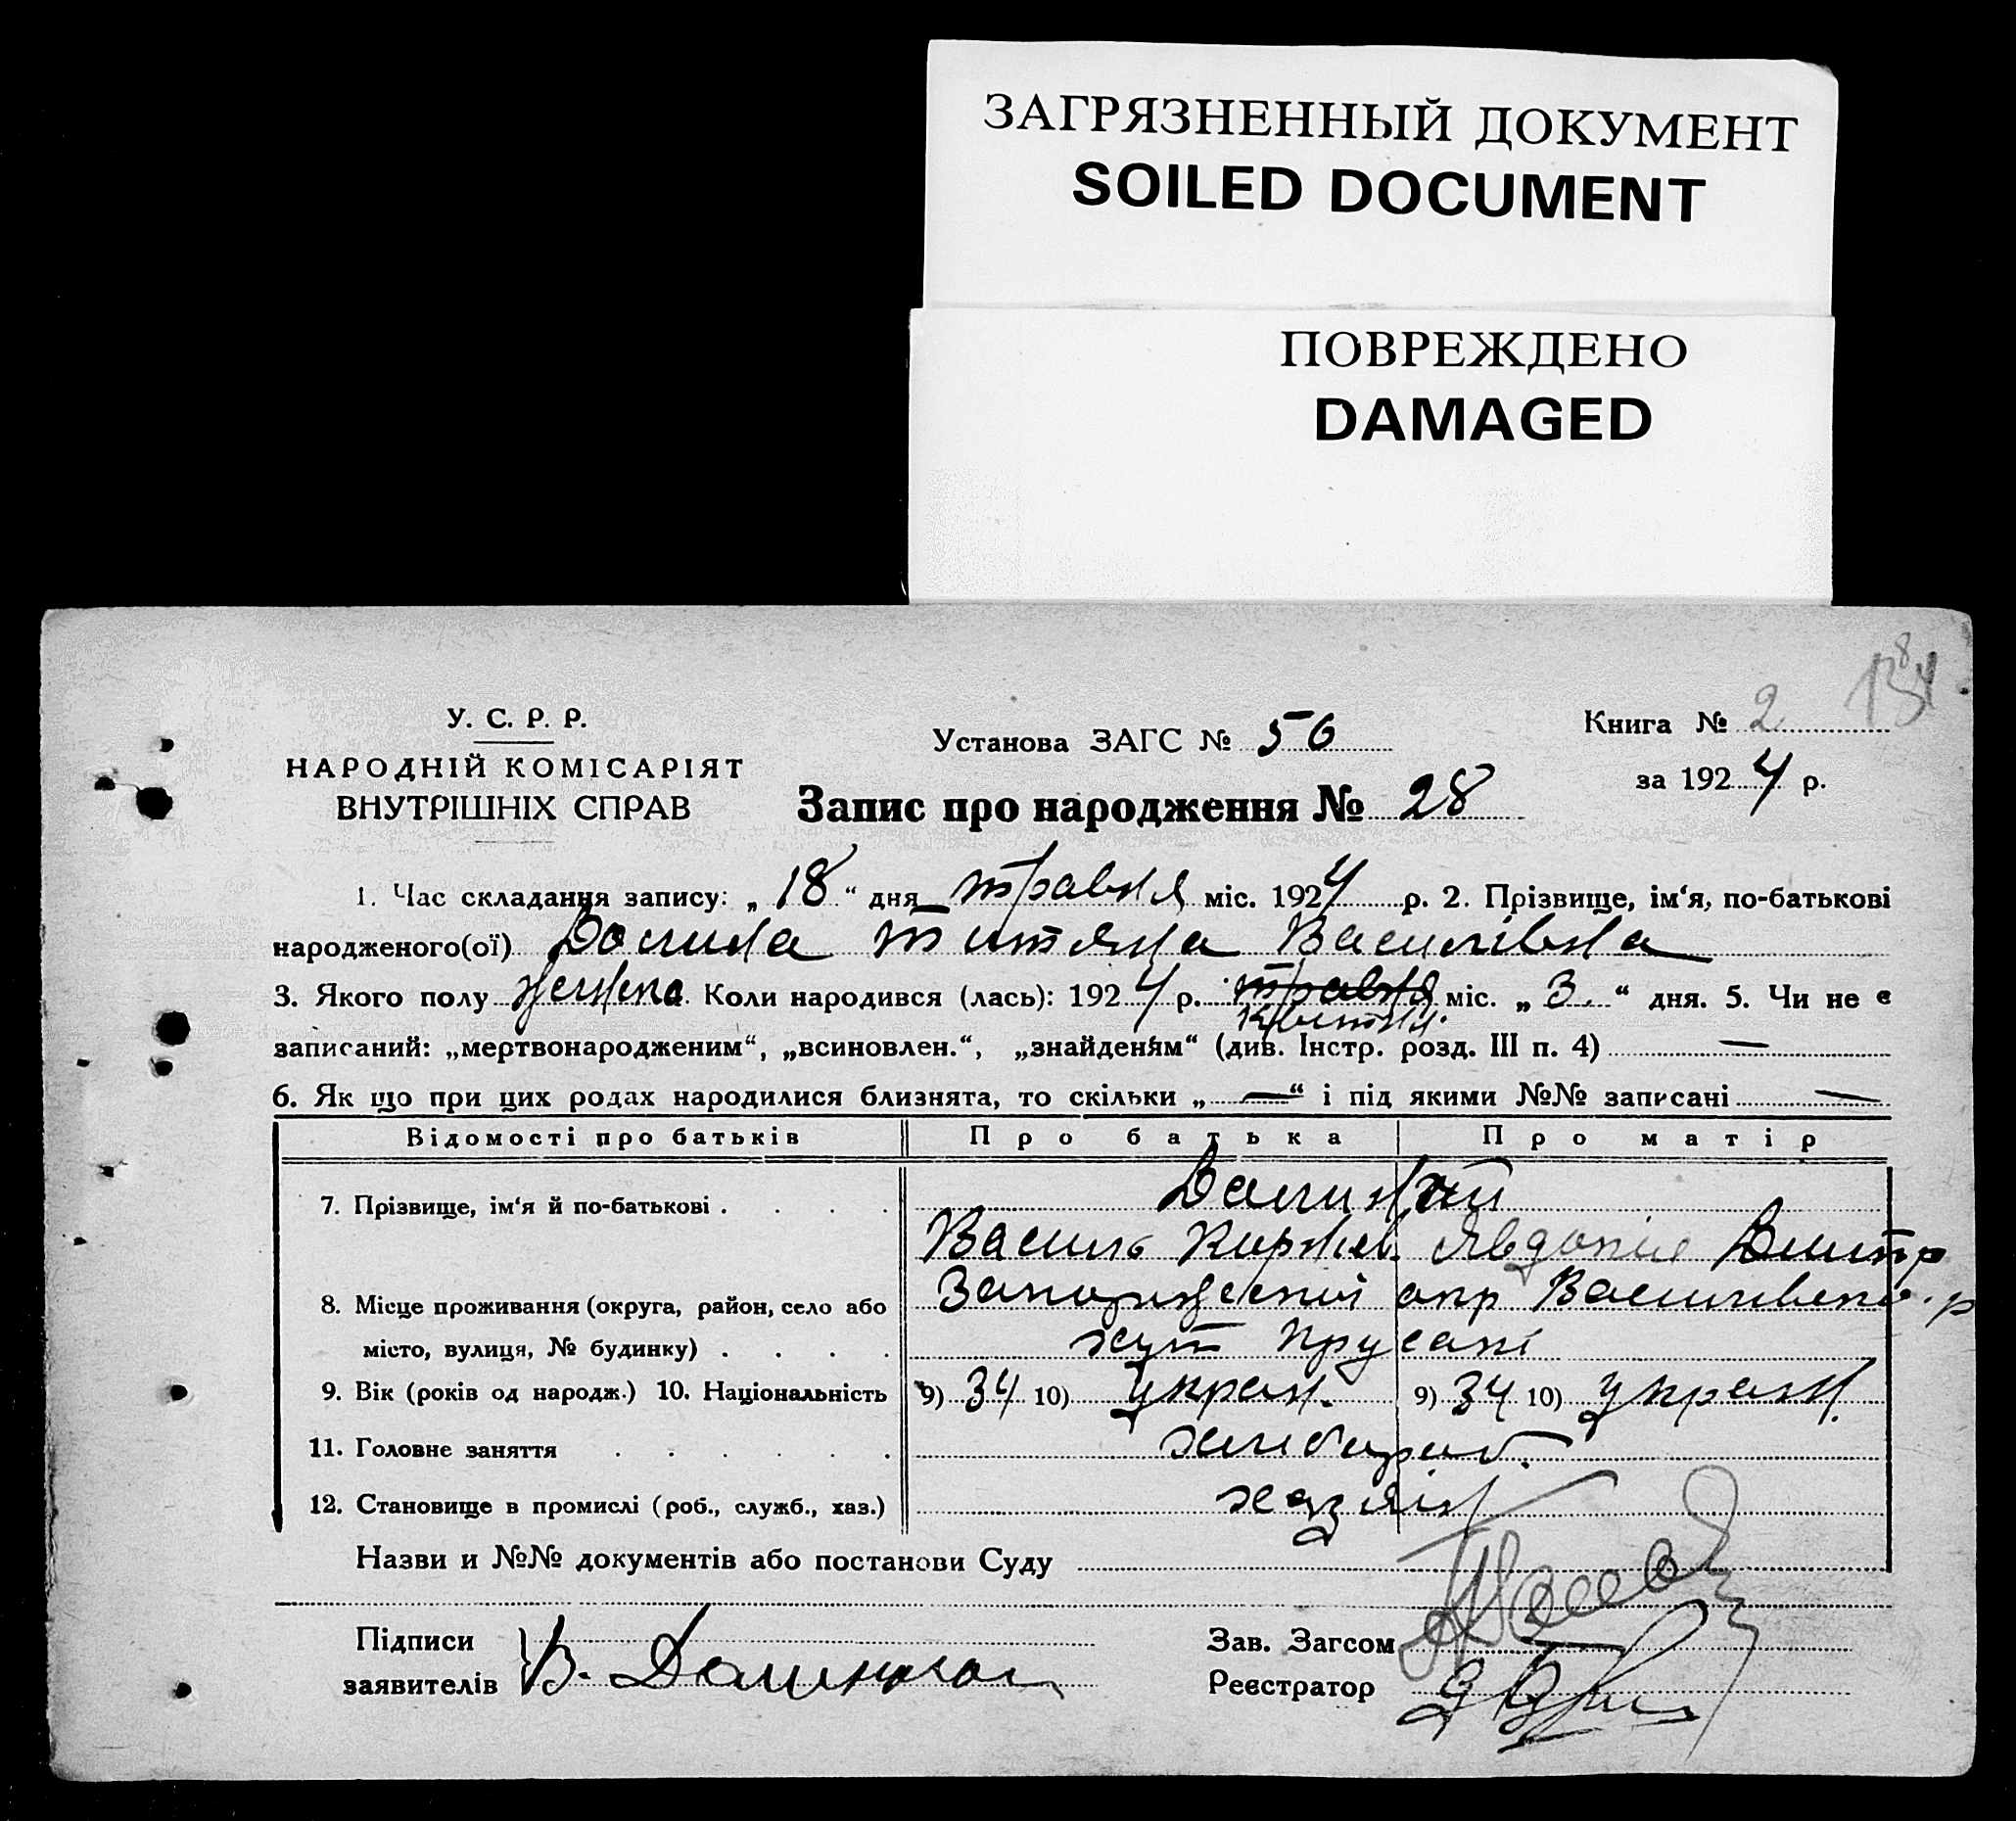 ЗАГРЯЗНЕННЫЙ ДОКУМЕНТ
SOILED DOCUMENT
ПОВРЕЖДЕНО
DAMAGED
У. С. Р. Р.
НАРОДНІЙ КОМІСАРІЯТ
ВНУТРІШНІХ СПРАВ
Установа ЗАГС № 56
Книга № 2
за 1924 р.
Запис про народження № 28
1. Час складання запису: „ 18 “ дня травня міс. 1924 р. 2. Прізвище, ім‘я, по-батькові
народженого(ої) Титяна Василівна
3. Якого полу Коли народився (лась): 1924 р. травня міс. „ 3. “ дня. 5. Чи не є
квитня
записаний: „мертвонародженим“, „всиновлен.“, „знайденям“ (див. Інстр. розд. III п. 4) —
6. Як що при цих родах народилися близнята, то скільки „ — “ і під якими №№ записані —
Відомості про батьків Про батька Про матір
7. Прізвище, ім‘я й по-батькові . . . .
Василь Явдокія Дмитр
8. Місце проживання (округа, район, село або
місто, вулиця, № будинку) . . . . хут
9. Вік (років од народж.) 10. Національність 9) 34 10) украин. 9) 34 10) украин.
11. Головне заняття . . . . . . хлибороб.
12. Становище в промислі (роб., служб., хаз.) хазяін
Назви и №№ документів або постанови Суду
Підписи
заявителів В.
Зав. Загсом
Реєстратор